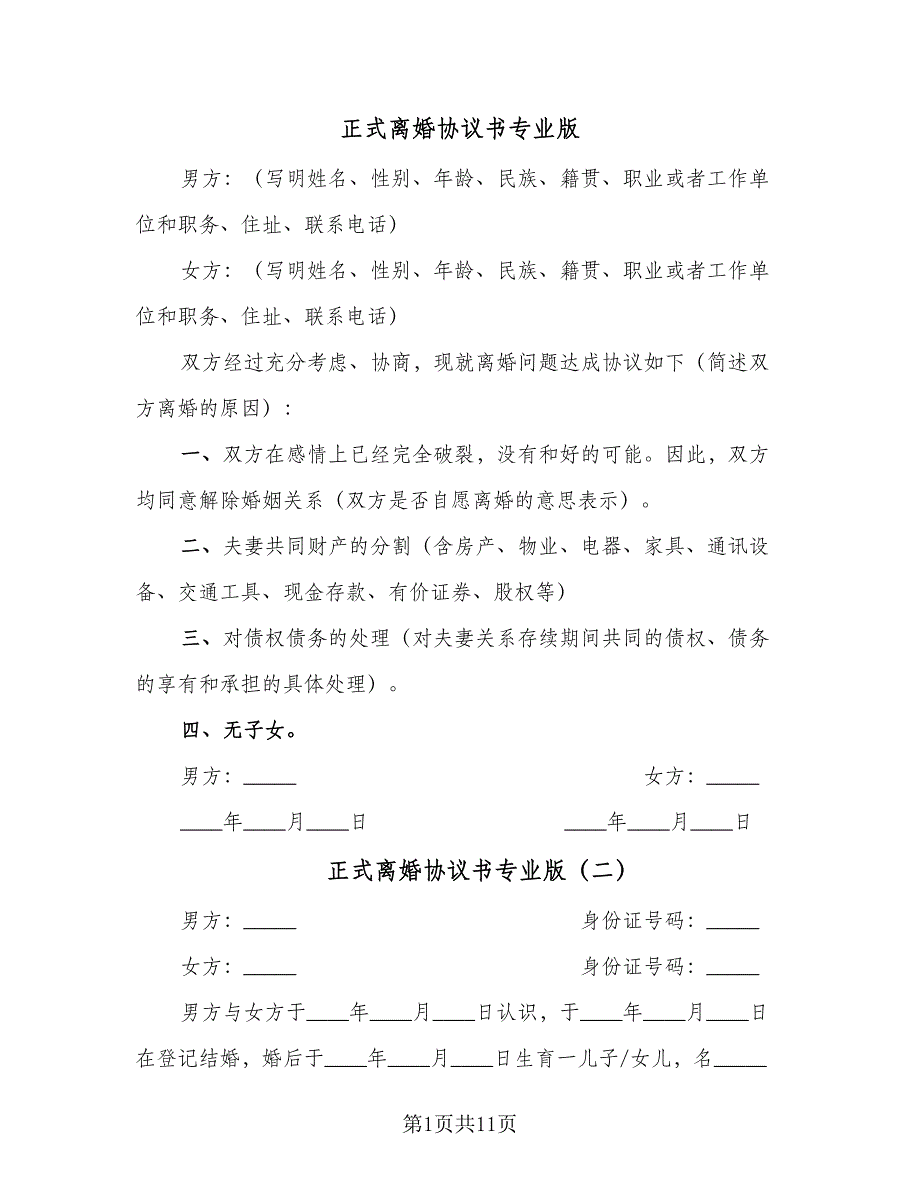 正式离婚协议书专业版
男方：（写明姓名、性别、年龄、民族、籍贯、职业或者工作单
位和职务、住址、联系电话）
女方：（写明姓名、性别、年龄、民族、籍贯、职业或者工作单
位和职务、住址、联系电话）
双方经过充分考虑、协商，现就离婚问题达成协议如下（简述双
方离婚的原因）：
一、双方在感情上已经完全破裂，没有和好的可能。因此，双方
均同意解除婚姻关系（双方是否自愿离婚的意思表示）。
二、夫妻共同财产的分割（含房产、物业、电器、家具、通讯设
备、交通工具、现金存款、有价证券、股权等）
三、对债权债务的处理（对夫妻关系存续期间共同的债权、债务
的享有和承担的具体处理）。
四、无子女。
男方：_____ 女方：_____
____年____月____日 ____年____月____日
正式离婚协议书专业版（二）
男方：_____ 身份证号码：_____
女方：_____ 身份证号码：_____
男方与女方于____年____月____日认识，于____年____月____日
在登记结婚，婚后于____年____月____日生育一儿子/女儿，名_____
第1页共11页